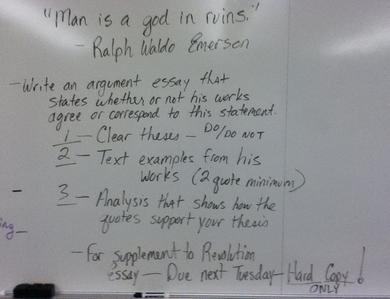 "Man is a god in ruins."
- Ralph Waldo Emerson
- Write an argument essay that
states whether or not his works
agree or correspond to this statement.
1 - Clear theses - DO/DO NOT
2 - Text examples from his
works (2 quote minimum)
3 - Analysis that shows how the
quotes support your thesis
ing -
- For supplement to Revolution
essay - Due next Tuesday - Hard Copy!
ONLY